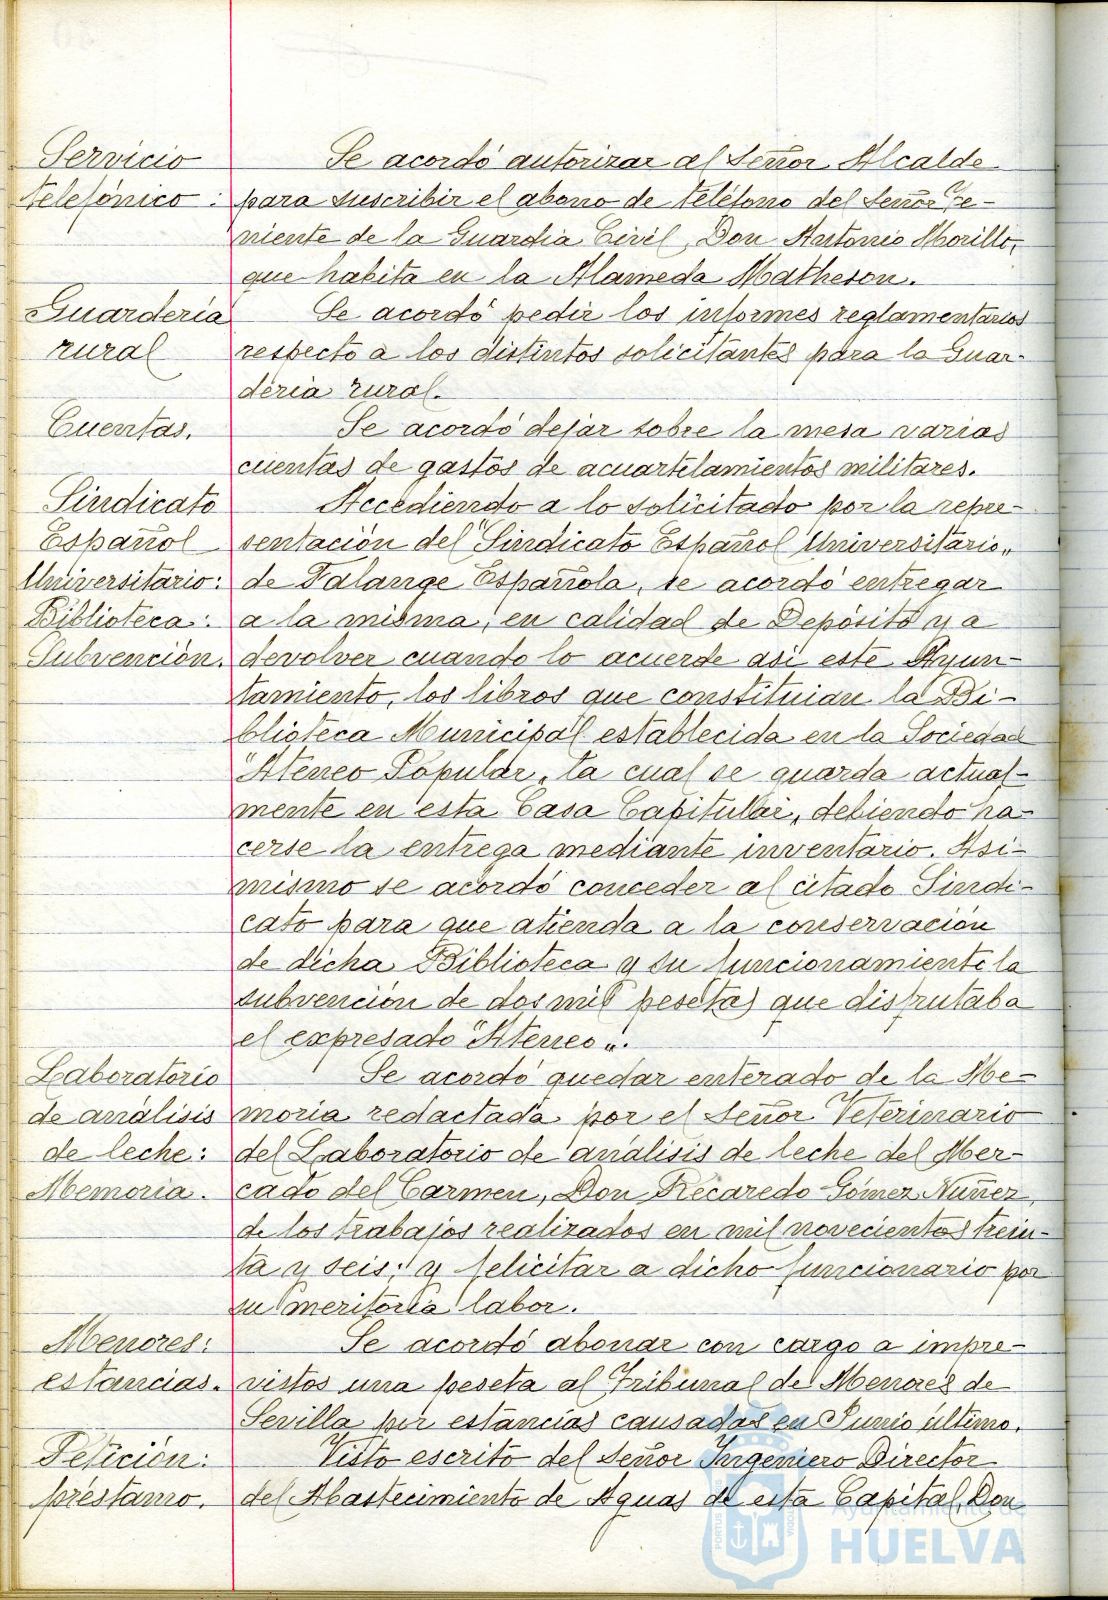 Servicio
telefónico:
Se acordó autorizar al Señor Alcalde
para suscribir el abono de teléfono del Señor Te-
niente de la Guardia Civil, Don Antonio Morillo,
que habita en la Alameda Matheson.
Guardería
rural
Se acordó pedir los informes reglamentarios
respecto a los distintos solicitantes para la Guar-
dería rural.
Cuentas.
Se acordó dejar sobre la mesa varias
cuentas de gastos de acuartelamientos militares.
Sindicato
Español
Universitario:
Biblioteca:
Subvención.
Accediendo a lo solicitado por la repre-
sentación del "Sindicato Español Universitario"
de Falange Española, se acordó entregar
a la misma, en calidad de Depósito y a
devolver cuando lo acuerde asi este Ayun-
tamiento, los libros que constituian la Bi-
blioteca Municipal establecida en la Sociedad
"Ateneo Popular" la cual se guarda actual-
mente en esta Casa Capitular, debiendo ha-
cerse la entrega mediante inventario. Asi-
mismo se acordó conceder al citado Sindi-
cato para que atienda a la conservación
de dicha Biblioteca y su funcionamiento la
subvención de dos mil pesetas que disfrutaba
el expresado "Ateneo".
Laboratorio
de análisis
de leche:
Memoria.
Se acordó quedar enterado de la Me-
moria redactada por el Señor Veterinario
del Laboratorio de análisis de leche del Mer-
cado del Carmen, Don Recaredo Gómez Nuñez,
de los trabajos realizados en mil novecientos trein-
ta y seis; y felicitar a dicho funcionario por
su meritoria labor.
Menores:
estancias.
Se acordó abonar con cargo a impre-
vistos una peseta al Tribunal de Menores de
Sevilla por estancias causadas en Junio último.
Petición:
préstamo.
Visto escrito del Señor Ingeniero Director
del Abastecimiento de Aguas de esta Capital, Don
Ayuntamiento de
HUELVA